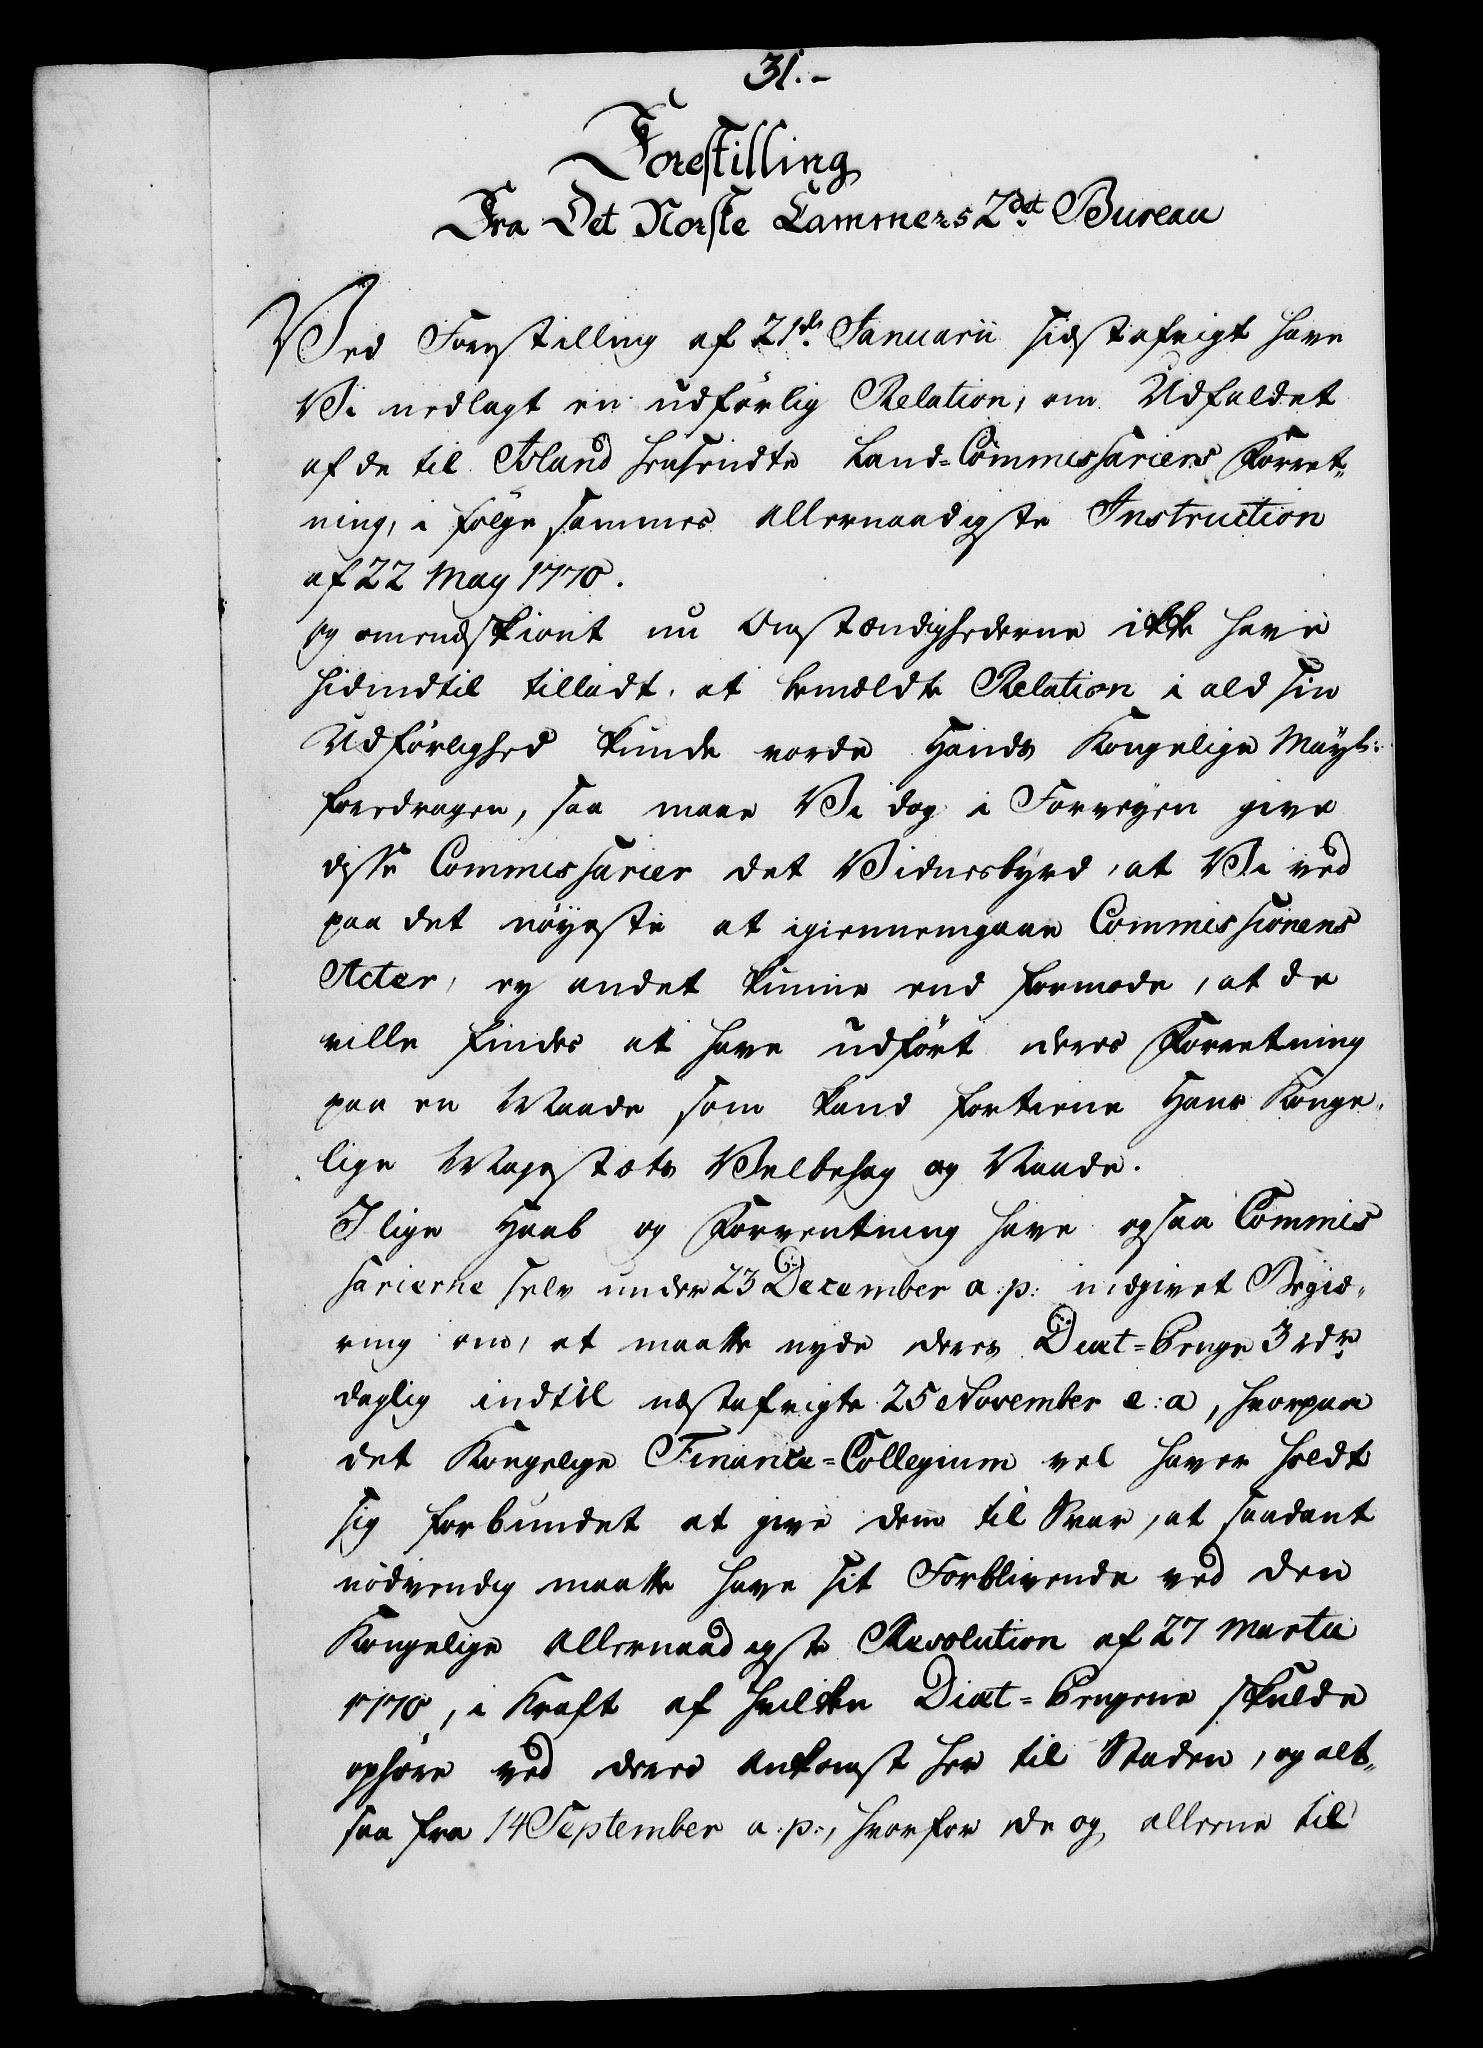 31.-
Forestilling
Fra Det Norske Cammers 2det Bureau
Ved Forestilling af 21de Januarii sidstafvigt have
Vi nedlagt en udförlig Relation, om Udfaldet
af de til Island hensendte Land-Commissariers Forret„
ning, i fölge sammes allernaadigste Instruction
af 22 May 1770.
og omendskiønt nu Omstændighederne ikke have
hidindtil tilladt, at bemældte Relation i ald sin
Udförlighed kunde vorde Hands Kongelige Mayts:
foredragen, saa maae Vi dog i Forveyen give
disse Commissarier det Vidnesbyrd, at Vi ved
paa det nöyeste at igiennemgaae Commissionens
Acter, ey andet kunne end formode, at de
ville findes at have udfört deres Forretning
paa en Maade som kand fortiene Hans Konge„
lige Majestæts Velbehag og Naade.
I lige Haab og Forventning have ogsaa Commis
sarierne selv under 23 December a: p: indgivet Begiæ„
ring om, at maatte nyde deres Diæt-Penge 3 rdr
daglig indtil næstafvigte 25 November e: a, hvorpaa
det Kongelige Finance-Collegium vel haver holdt
sig forbundet at give dem til Svar, at saadant
nödvendig maatte have sit Forblivende ved den
Kongelige allernaadigste Resolution af 27 Martii
1770, i Kraft af hvilken Diæt-Pengene skulde
ophöre ved deres Ankomst her til Staden, og alt„
saa fra 14 September a: p:, hvorfor de og allene til